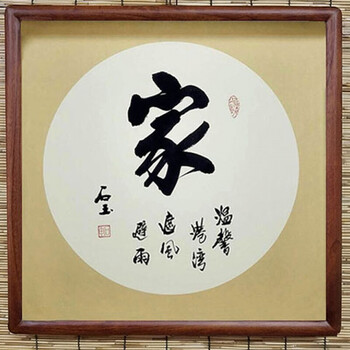 家
温馨
港湾
遮風
避雨
石玉